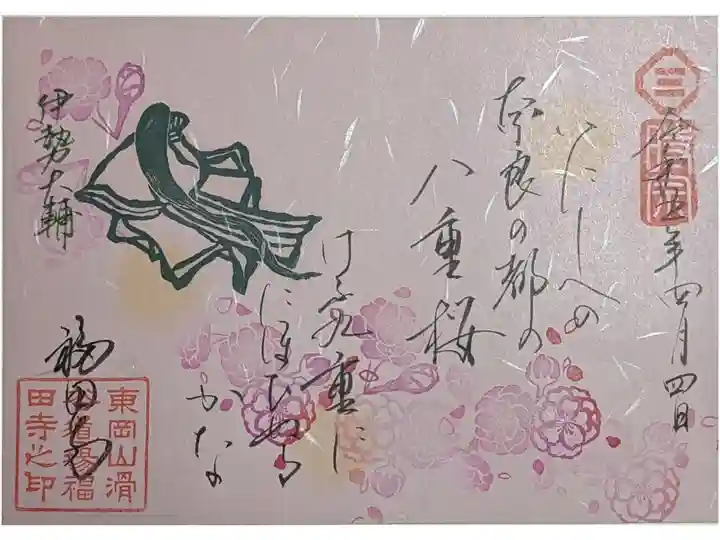 令和五年四月四日
いにしへの
奈良の都の
八重桜
けふ九重に
にほひぬる
かな
伊勢大輔
福田寺
三
東岡山滑
福田寺之印